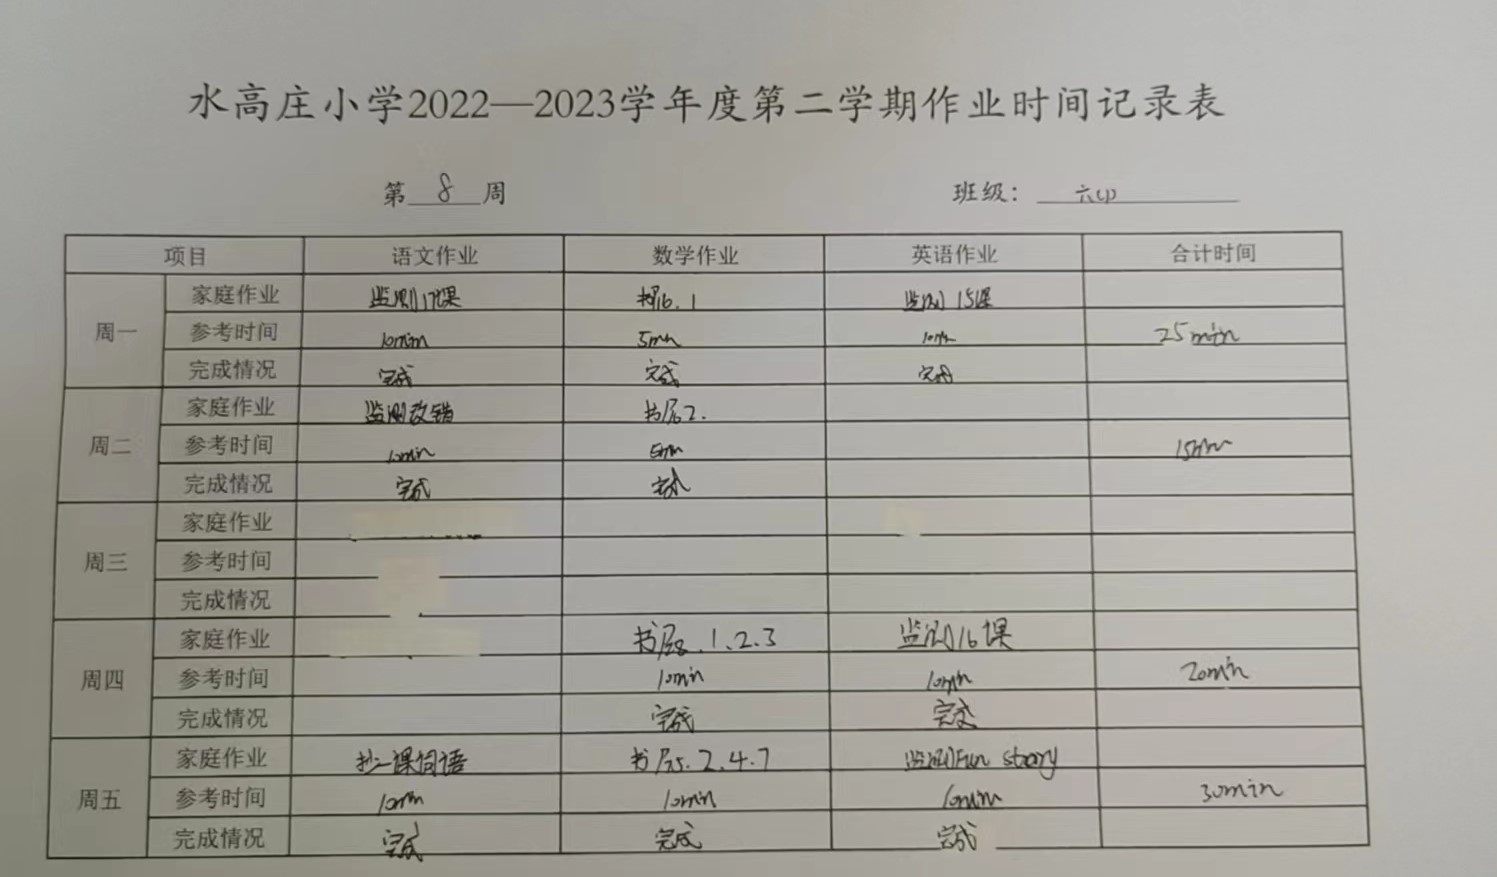 水高庄小学2022—2023学年度第二学期作业时间记录表
第 8 周 班级： 六(1)
项目 语文作业 数学作业 英语作业 合计时间
周一
家庭作业 监测17课 监测15课
参考时间 10min 5min 10min 25min
完成情况 完成 完成 完成
周二
家庭作业 监测改错
参考时间 10min 5min 15min
完成情况 完成 完成
周三
家庭作业
参考时间
完成情况
周四
家庭作业 1、2、3 监测16课
参考时间 10min 10min 20min
完成情况 完成 完成
周五
家庭作业 抄一课词语 2.4.7 监测Fun story
参考时间 10min 10min 10min 30min
完成情况 完成 完成 完成